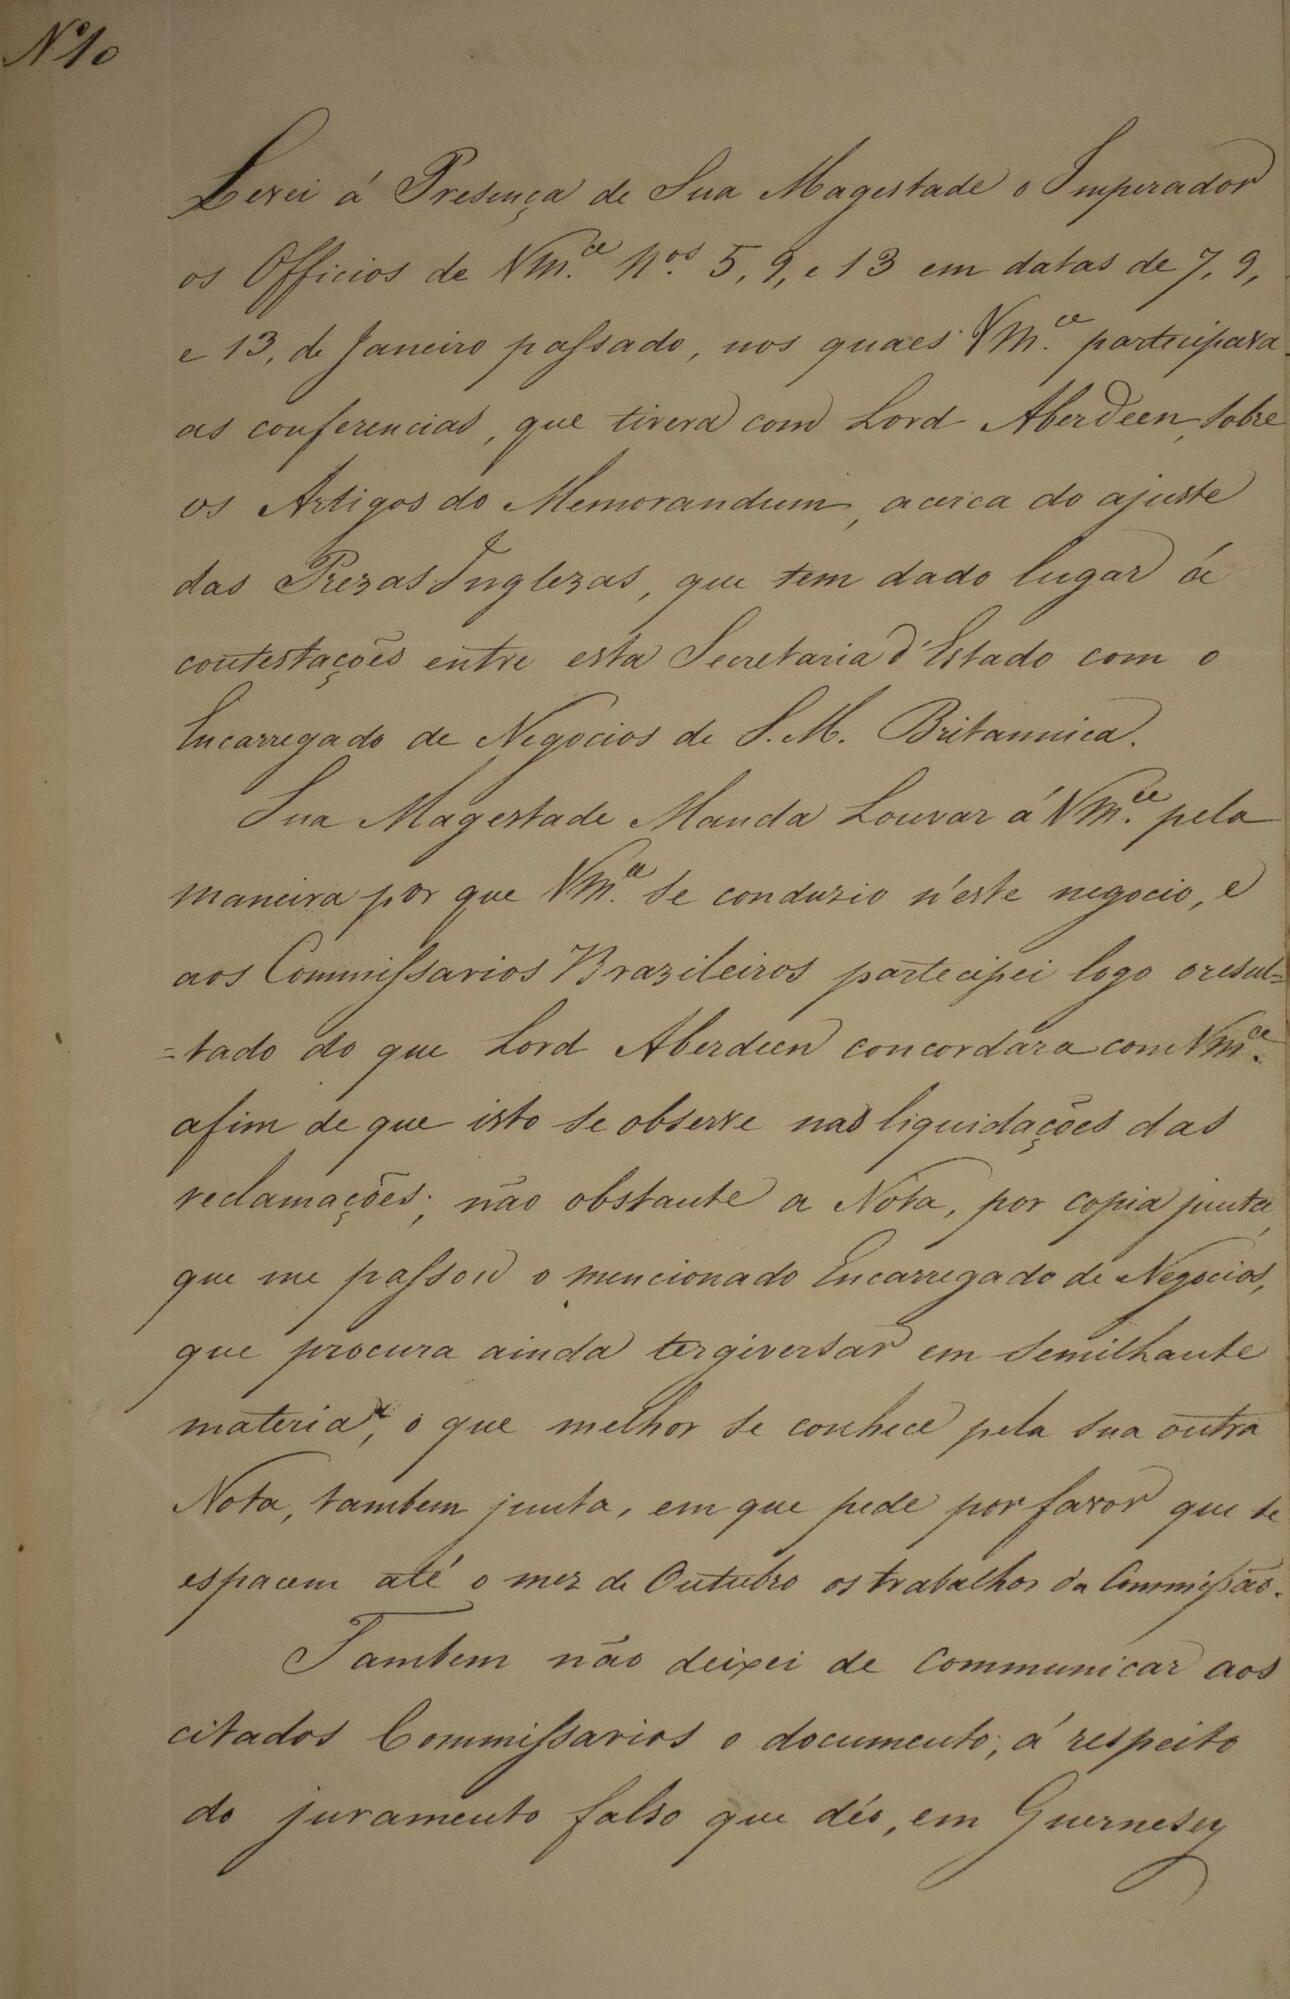 Nº 10
Levei á Presença de Sua Magestade o Imperador
os Officios de Vm.ce N.os 5, 9, e 13 em datas de 7, 9,
e 13, de Janeiro passado, nos quaes Vm.ce participava
as conferencias, que tivera com Lord Aberdeen, sobre
os Artigos do Memorandum, acerca do ajuste
das Prezas Inglezas, que tem dado lugar á
contestações entre esta Secretaria d'Estado com o
Encarregado de Negocios de S. M. Britannica.
Sua Magestade Manda Louvar á Vm.ce pela
maneira por que Vm.ce se conduzio n'este negocio, e
aos Commissarios Brazileiros partecipei logo o resul=
=tado do que Lord Aberdeen concordara com Vm.ce
afim de que isto se observe nas liquidações das
reclamações; não obstante a Nota, por copia junta,
que me passou o mencionado Encarregado de Negocios,
que procura ainda tergiversar em semilhante
materia, o que melhor se conhece pela sua outra
Nota, tambem junta, em que pede por favor que se
espacem até o mez de Outubro os trabalhos da Commissão.
Tambem não deixei de communicar aos
citados Commissarios o documento, á respeito
do juramento falso que déo, em Guernesey